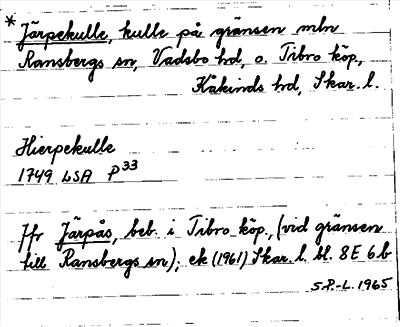 * Järpekulle, kulle på gränsen mln
Ransbergs sn, Vadsbo hd, o. Tibro köp.,
Kåkinds hd, Skar. l.
Hierpekulle
1749 LSA P33
Jfr Järpås, beb. i Tibro köp., (vid gränsen
till Ransbergs sn); ek (1961) Skar. l. bl. 8E 6b
S.P.-L. 1965